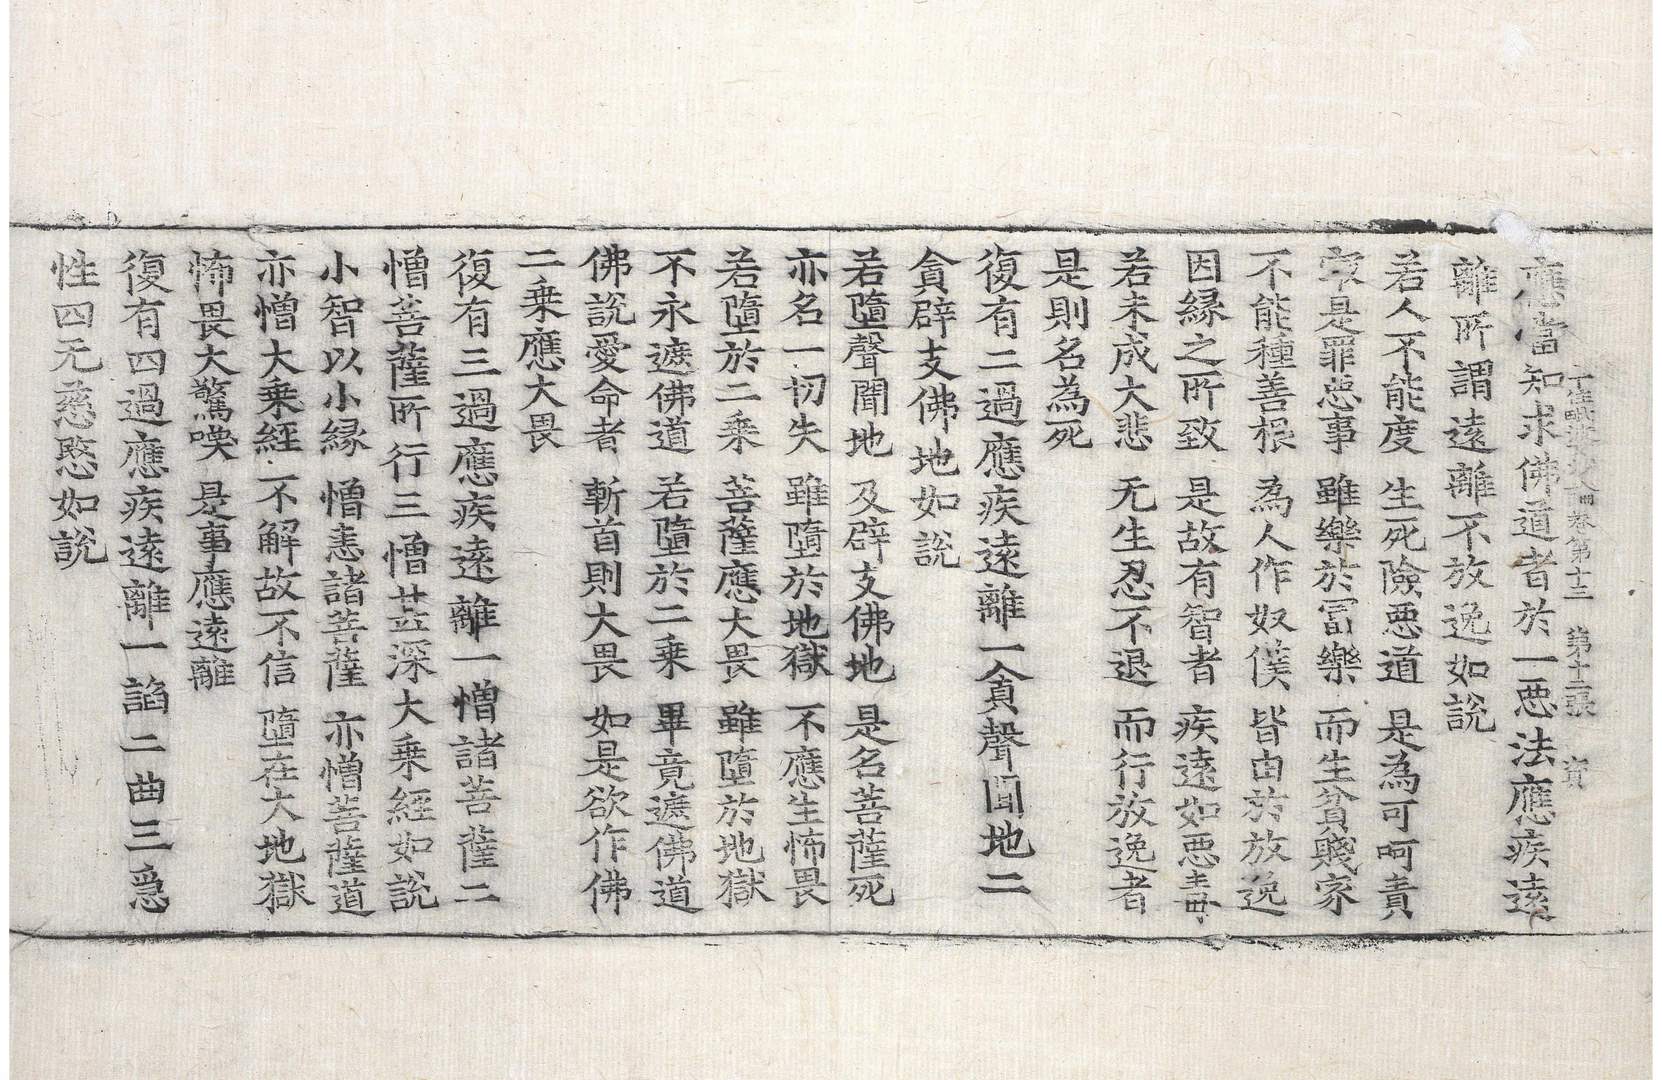 十住毗婆沙論卷第十三 第十二張 賓
應當知求佛道者於一惡法應疾遠
離所謂遠離不放逸如說
若人不能度 生死險惡道 是為可呵責
寂是罪惡事 雖樂於冨樂 而生貧賤家
不能種善根 為人作奴僕 皆由於放逸
因緣之所致 是故有智者 疾遠如惡毒
若未成大悲 无生忍不退 而行放逸者
是則名為死
復有二過應疾遠離一貪聲聞地二
貪辟支佛地如說
若墮聲聞地 及辟支佛地 是名菩薩死
亦名一切失 雖墮於地獄 不應生怖畏
若墮於二乘 菩薩應大畏 雖墮於地獄
不永遮佛道 若墮於二乘 畢竟遮佛道
佛說愛命者 斬首則大畏 如是欲作佛
二乘應大畏
復有三過應疾遠離一憎諸菩薩二
憎菩薩所行三憎甚深大乘經如說
小智以小緣 憎恚諸菩薩 亦憎菩薩道
亦憎大乘經 不解故不信 墮在大地獄
怖畏大驚喚 是事應遠離
復有四過應疾遠離一諂二曲三急
性四无慈愍如說